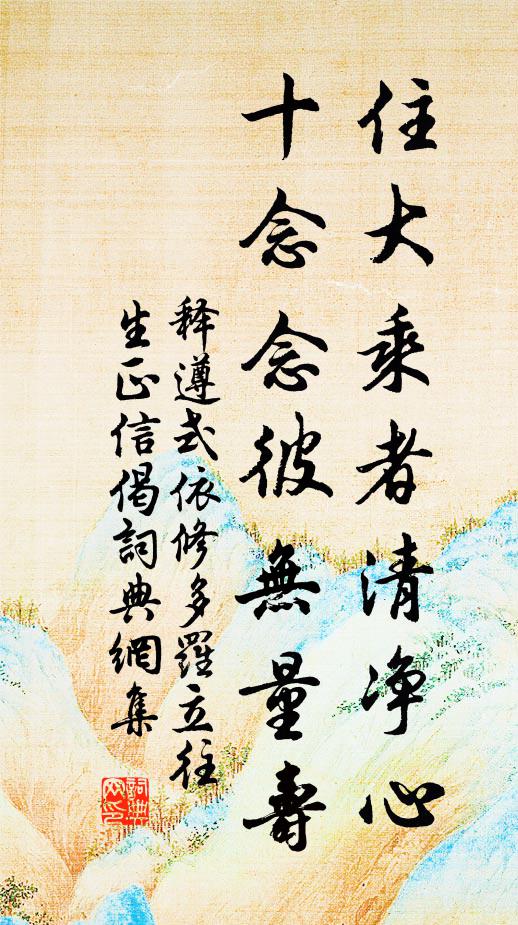 住大乘者清净心
十念念彼無量壽
释遵式依修多羅立往
生正信偈詞典網集
詞典
网印